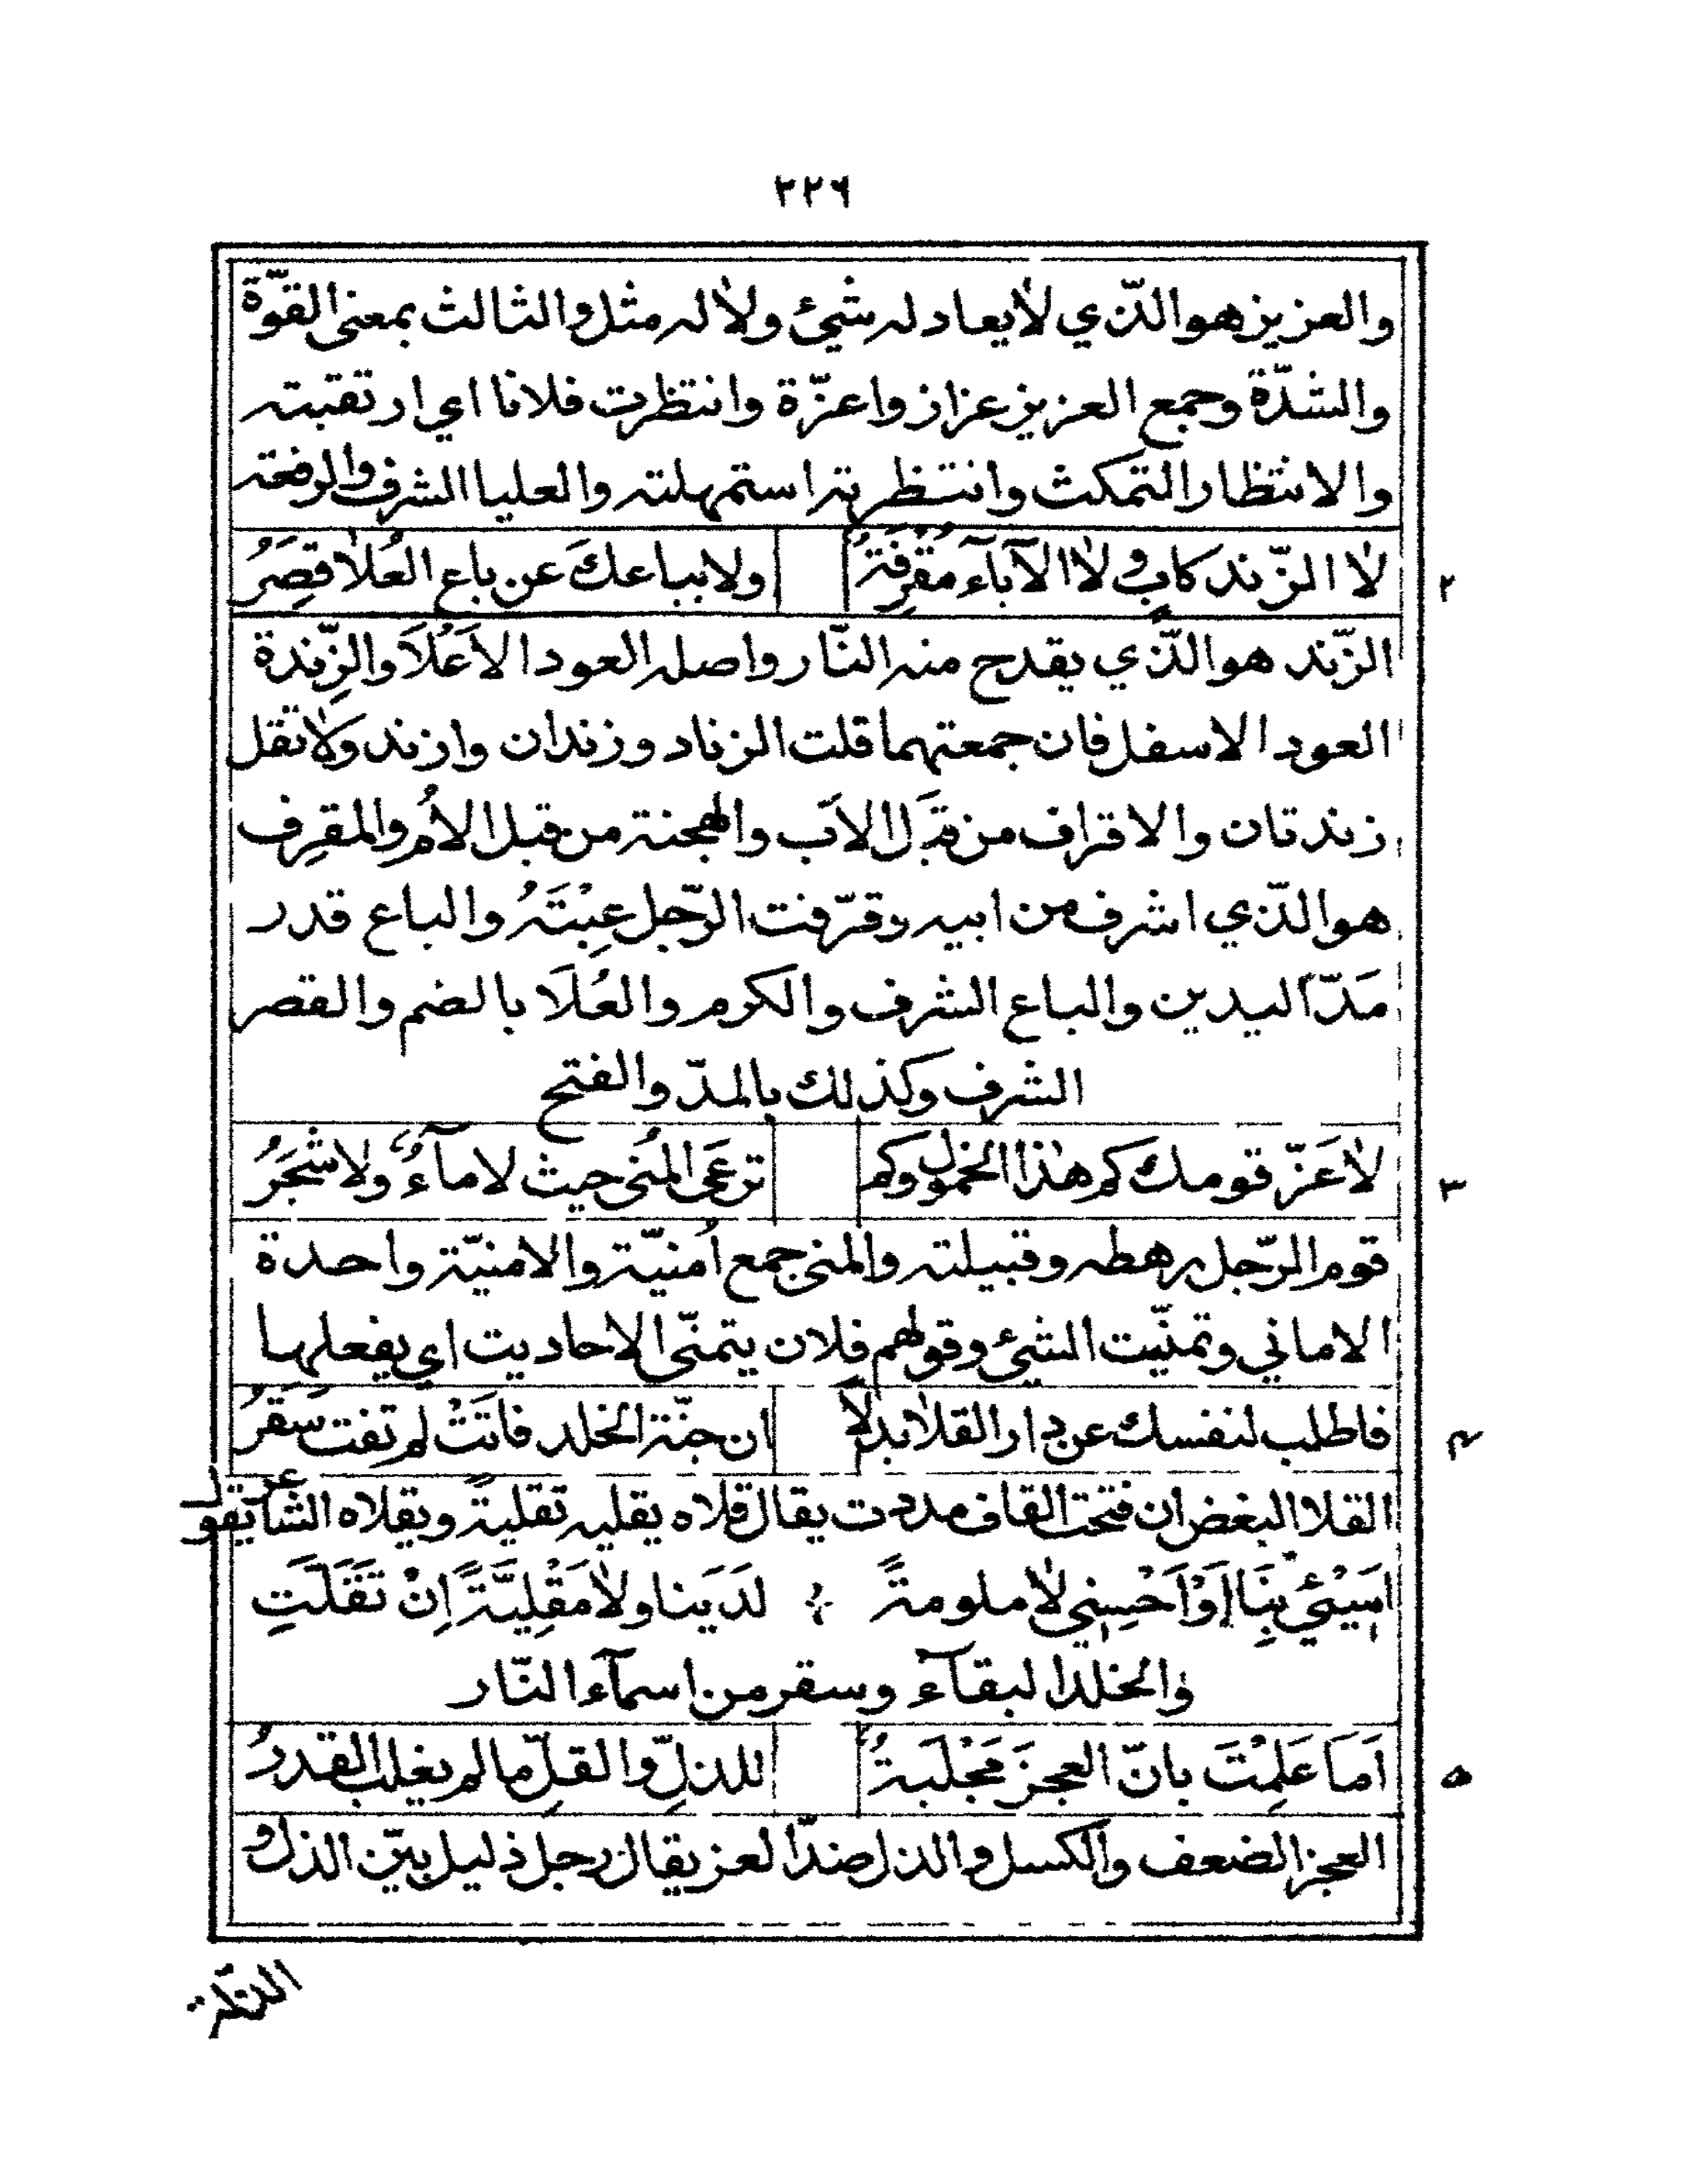 ٢٢٦
والعزيز هو الذّي لا يعادله شيئ ولا له مثل والثالث بمعنى القوّة
والشدّة وجمع العزيز عزاز واعزّة وانتظرت فلانا اي ارتقبته
والانتظار التمكث وانتظرته استمهلته والعليا الشرف والرفعة
٢ لا الزّند كابٍ ولا الآبآء مُقْرِفَةٌ ولا بباعك عن باع العُلا قِصَرُ
الزّند هو الذّي يقدح منه النّار واصله العود الاَعْلاَ والزِّندة
العود الاسفل فان جمعتهما قلت الزناد وزندان وازند ولا تقل
زندتان والاقراف من قِبَل الاَب والهجنة من قبل الاُم والمقرِف
هو الذّي اشرف من ابيه وقرّفت الرّجل عِبْتَهُ والباع قدر
مَدّ اليدين والباع الشرف والكرم والعُلاَ بالضم والقصر
الشرف وكذلك بالمدّ والفتح
٣ لا عَزّ قومك كم هذا الخمول وكم ترعَى المُنى حيث لا مآءٌ ولا شَجَرُ
قوم الرّجل رهطه وقبيلته والمنى جمع اُمنيّة والامنيّة واحدة
الاماني وتمنّيت الشيئ وقولهم فلان يتمنّى الاحاديت اي يفعلها
٤ فاطلب لنفسك عن دار القلا بدلاً ان جنّة الخلد فاتَتْ لم تفت سَقَرُ
القلا البغض ان فتحت القاف مددت يقال قلاه يقليه تقليةً ويقلاه الشاعر يقول
اَسِيْئِي بِنَا اَوْ اَحْسِنِي لا ملومةً لدَيَنا ولا مَقْلِيَّةً اِنْ تَقَلَّتِ
والخلد البقآء وسقر من اسمآء النّار
٥ اَمَا عَلِمْتَ بانّ العجزَ مَجْلَبَةٌ للذلِّ والقلِّ ما لم يغلب القدرُ
العجز الضعف والكسل والذل ضدّ العز يقال رجل ذليل بيّن الذل و